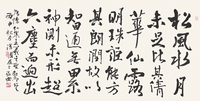 松風水月
未足比其清
華仙露
明珠詎能方
其朗潤故以
智通無累
神測未形超
六塵而迥出